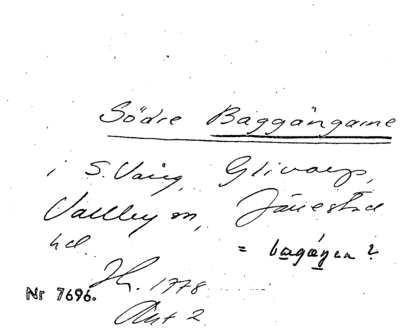 Södre Baggångarne
i S. Vång, Glivarp,
Valleby m, Järrestad
hd. = bagågen?
Nr 7696. H. 1778
Akt 2